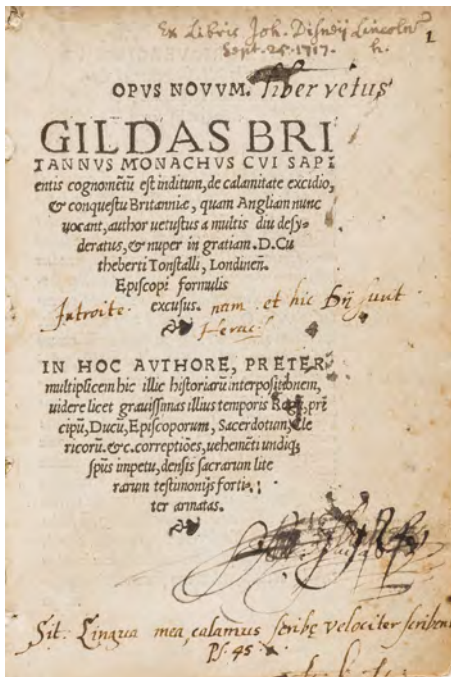 Ex Libris Joh. Disneij Lincolnˢ
Sept. 25. 1717. h. 1
OPVS NOVVM. liber vetus
GILDAS BRI
TANNVS MONACHVS CVI SAPI
entis cognomẽtũ est inditum, de calamitate excidio,
& conquestu Britanniæ, quam Angliam nunc
uocant, author uetustus a multis diu desy-
deratus, & nuper in gratiam .D. Cu
theberti Tonstalli, Londineñ.
Episcopi formulis
excusus.
Introite. nam et hic Dij sunt
Herac.
IN HOC AVTHORE, PRETER
multiplicem hic illic historiarũ interpositionem,
uidere licet grauissimas illius temporis Regũ, prĩ
cipũ, Ducũ, Episcoporum, Sacerdotum, Cle
ricorũ. &c. correptiões, uehemẽti undiq;
spũs impetu, densis sacrarum lite
rarum testimonijs forti-
ter armatas.
Sit: Lingua mea, calamus scribę velociter scribent
Ps: 45